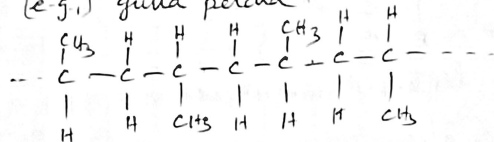 (e.g.,) gutta percha
CH3 H H H CH3 H H
--- C — C — C — C — C — C — C ----
H H CH3 H H H CH3